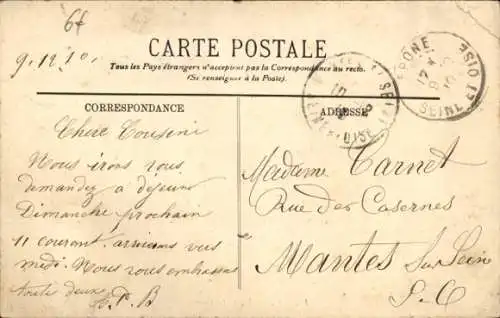 6f
9.12.10.
CARTE POSTALE
Tous les Pays étrangers n'acceptent pas la Correspondance au recto.
(Se renseigner à la Poste).
CORRESPONDANCE
Chère Cousine
Nous irons vous
demandez a dejeuner
Dimanche prochain
11 courant. arriverons vers
midi. Nous vous embrassons
toute deux
P. B
ADRESSE
Madame Carnet
Rue des Casernes
Mantes Sur Seine
S.O
SEINE ET OISE